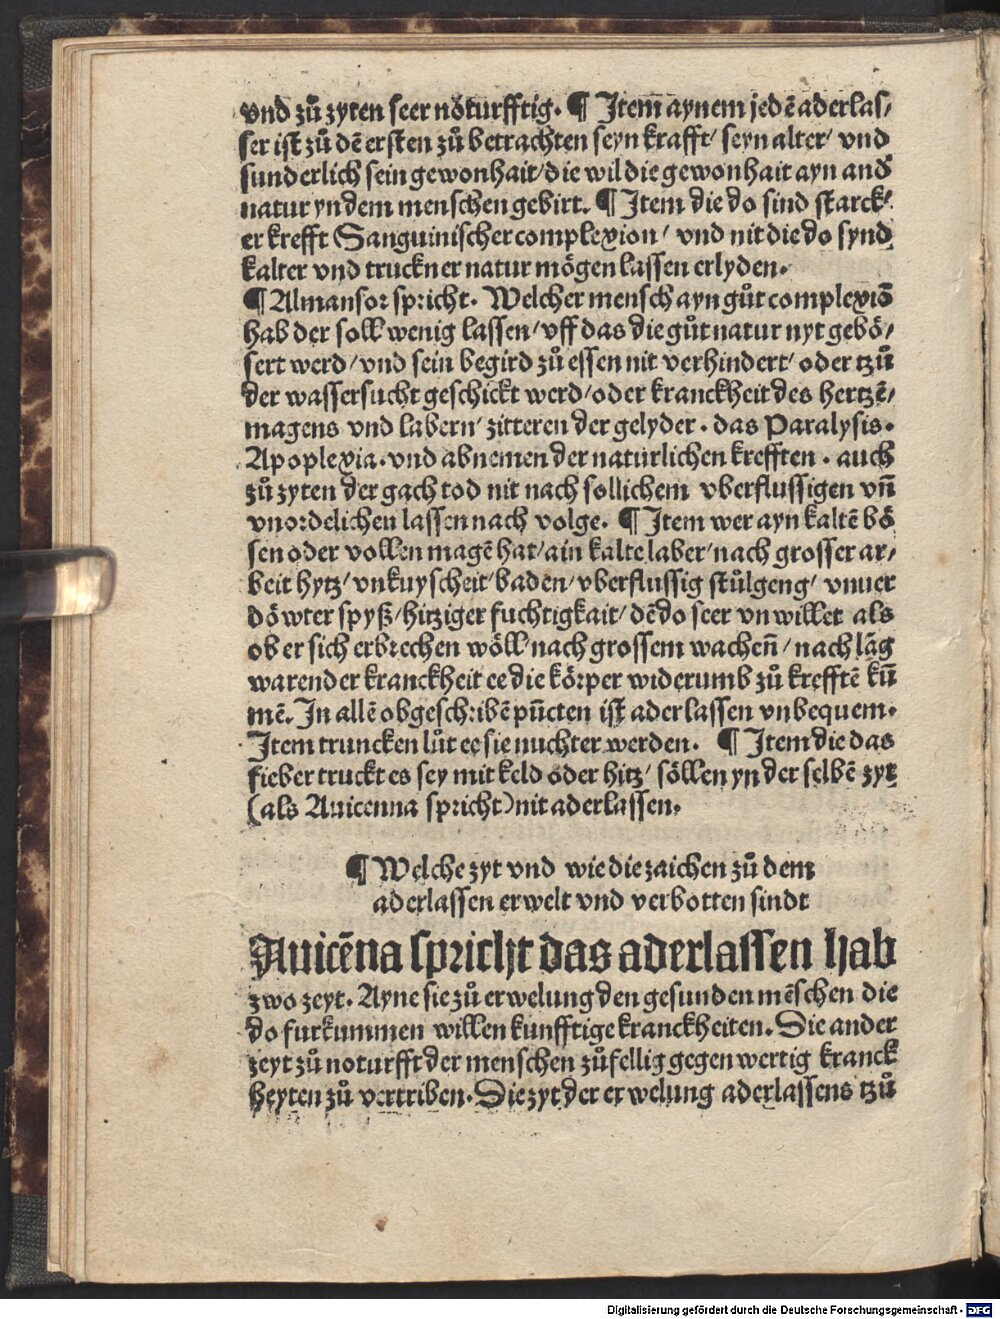 vnd zů zyten seer nöturfftig. ¶ Item aynem jedē aderlas/
ser ist zů dē ersten zů betrachten seyn krafft/ seyn alter/ vnd
sunderlich sein gewonhait/ die wil die gewonhait ayn and
natur yn dem menschen gebirt. ¶ Item die do sind starck/
er krefft Sanguinischer complexion/ vnd nit die do synd
kalter vnd truckner natur mögen lassen erlyden.
¶ Almansor spricht. Welcher mensch ayn gůt complexiō
hab der soll wenig lassen/ vff das die gůt natur nyt gebö/
sert werd/ vnd sein begird zů essen nit verhindert/ oder tzů
der wassersucht geschickt werd/ oder kranckheit des hertzē/
magens vnd labern/ zitteren der gelyder. das Paralysis.
Apoplexia. vnd abnemen der naturlichen krefften. auch
zů zyten der gach tod nit nach sollichem vberflussigen vn̄
vnordelichen lassen nach volge. ¶ Item wer ayn kaltē bö
sen oder vollen magē hat/ ain kalte laber/ nach grosser ar/
beit hytz/ vnkuyscheit/ baden/ vberflussig stůlgeng/ vnuer
döwter spyß/ hitziger fuchtigkait/ dē do seer vnwillet als
ob er sich erbrechen wöll/ nach grossem wachen̄/ nach lāg
warender kranckheit ee die körper widerumb zů krefftē kū
mē. In allē obgeschribē pūcten ist aderlassen vnbequem.
Item truncken lůt ee sie nuchter werden. ¶ Item die das
fieber truckt es sey mit keld oder hitz/ söllen yn der selbē zyt
(als Auicenna spricht) nit aderlassen.
¶ Welche zyt vnd wie die zaichen zů dem
aderlassen erwelt vnd verbotten sindt
Auicēna spricht das aderlassen hab
zwo zeyt. Ayne sie zů erwelung den gesunden mēschen die
do furkummen willen kunfftige kranckheiten. Die ander
zeyt zů noturfft der menschen zůfellig gegenwertig kranck
heyten zů vertriben. Die zyt der erwelung aderlassens tzů
Digitalisierung gefördert durch die Deutsche Forschungsgemeinschaft - DFG